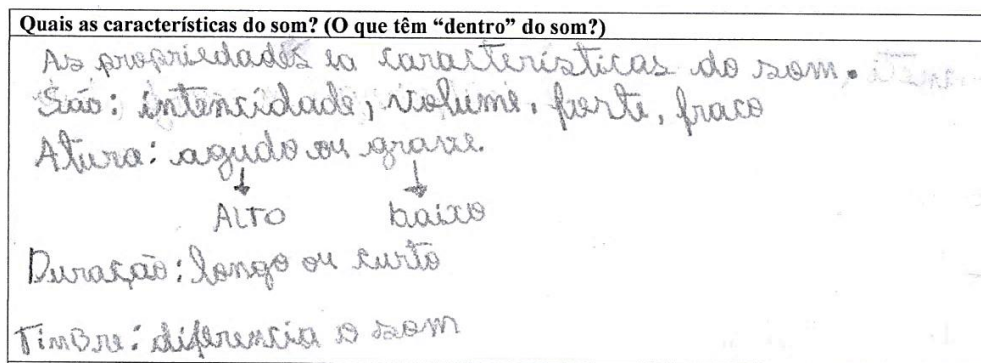 Quais as características do som? (O que têm “dentro” do som?)
As propriedades ea características do som.
São: intencidade, volume, forte, fraco
Atura: agudo ou grave.
↓ ↓
ALTO baixo
Duração: longo ou curto
TimBre: diferencia o som